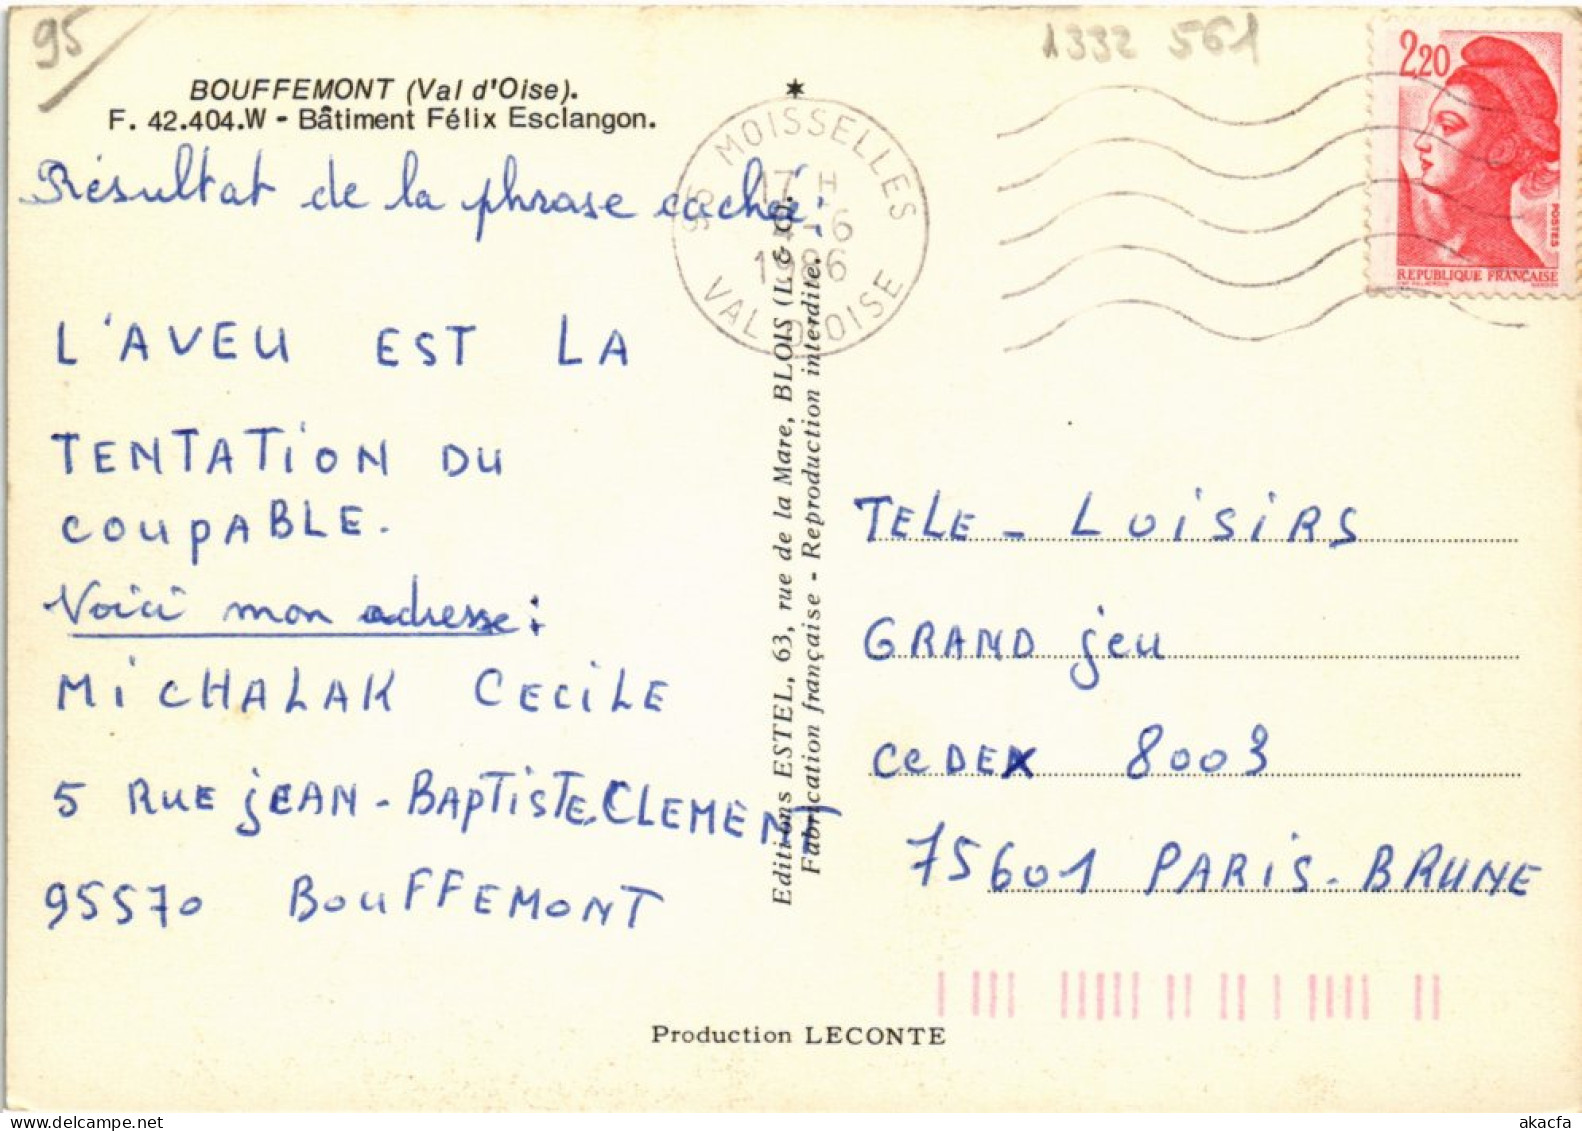 95
1332 561
BOUFFEMONT (Val d'Oise).
F. 42.404.W - Bâtiment Félix Esclangon.
Résultat de la phrase caché:
L'AVEU EST LA
TENTATION DU
COUPABLE.
Voici mon adresse:
MICHALAK CECILE
5 RUE JEAN-BAPTISTE.CLEMENT
95570 BOUFFEMONT
95 MOISSELLES
17 H
-6
1986
VAL D'OISE
Editions ESTEL, 63, rue de la Mare, BLOIS (L. & C.).
Fabrication française - Reproduction interdite.
2,20
POSTES
REPUBLIQUE FRANÇAISE
TELE - LOISIRS
GRAND JEU
CEDEX 8003
75601 PARIS-BRUNE
Production LECONTE
www.delcampe.net
akacfa